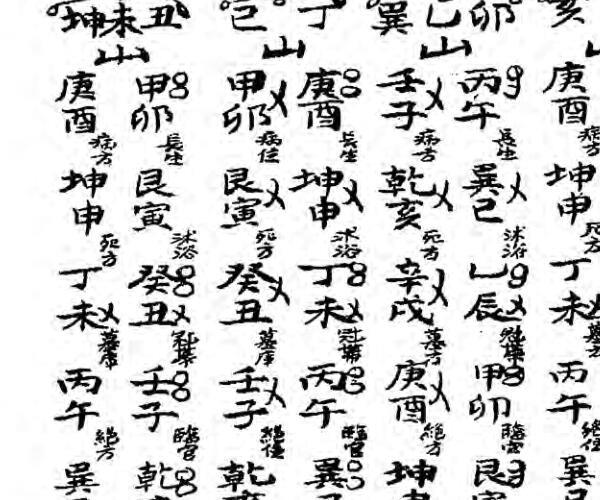 亥
庚酉病方坤申死方丁未墓方丙午絕位巽
巽乙卯
山
丙午長生巽巳沐浴乙辰冠帶甲卯臨官艮
壬子病方乾亥死方辛戌墓方庚酉絕方坤
巳丁
山
庚酉長生坤申沐浴丁未冠帶丙午臨官巽
甲卯病位艮寅死方癸丑墓庫壬子絕位乾
坤未丑
山
甲卯長生艮寅沐浴癸丑冠帶壬子臨官乾
庚酉病方坤申死方丁未墓庫丙午絕方巽